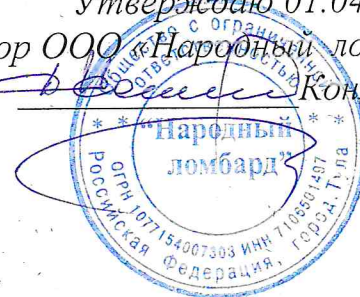 Утверждаю 01.04
ор ООО «Народный ло
Кон
Общество с ограниченной
ответственностью
* * "Народный * *
ломбард"
ОГРН 1077154007303 ИНН 7106501497
Российская Федерация, город Тула